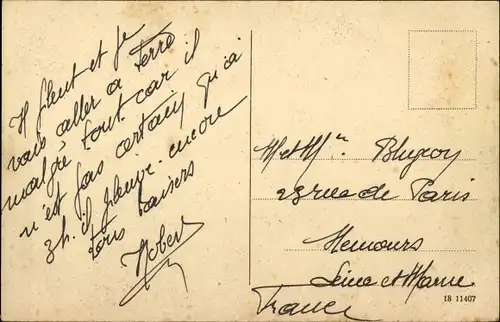 Il pleut et je
vais aller a terre
malgré tout car il
n'est pas certain qu'à
3h. il pleuve encore
bons baisers
Robert
M et Mme
23 rue de Paris
Nemours
Seine et Marne
France
18 11407